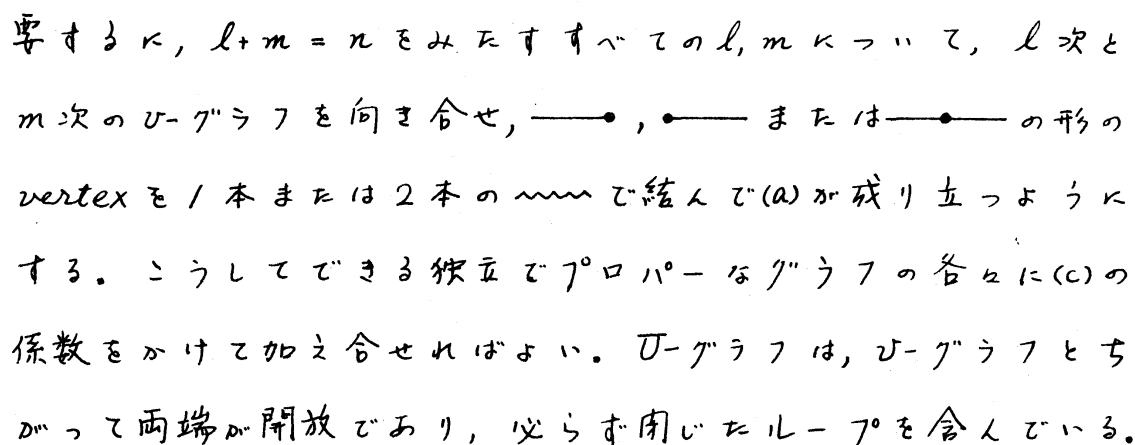 要するに, l+m=nをみたすすべてのl,mについて, l次と
m次のv-グラフを向き合せ, ——• , •—— または——•——の形の
vertexを1本または2本の〰〰で結んで(a)が成り立つように
する。こうしてできる独立でプロパーなグラフの各々に(c)の
係数をかけて加え合せればよい。U-グラフは, v-グラフとち
がって両端が開放であり, 必らず閉じたループを含んでいる。